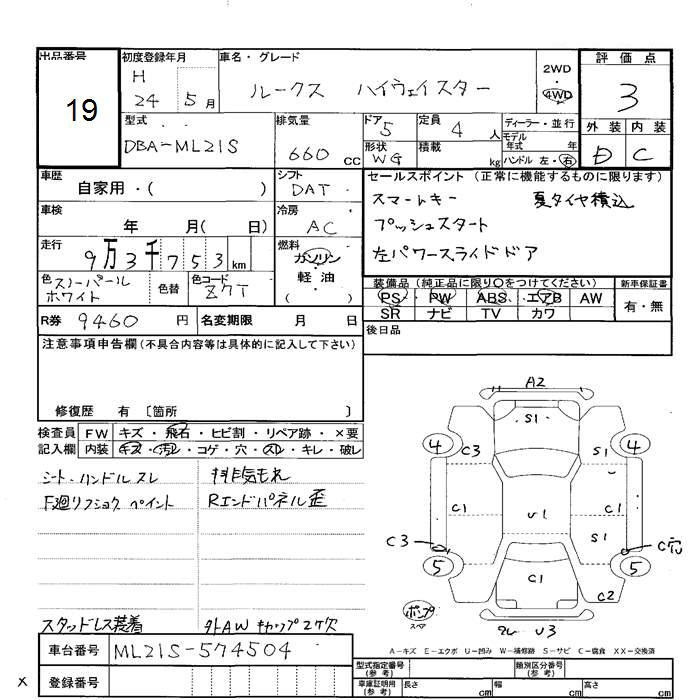 出品番号 初度登録年月 車名・グレード 評価点
19
H 24 5月
ルークス ハイウェイスター
2WD
4WD
3
型式 排気量 ドア 定員 ディーラー・並行 外装 内装
DBA-ML21S 660cc 5 4人 モデル年式 年
形状 WG 積載 kg ハンドル 左・右 D C
車歴 シフト セールスポイント(正常に機能するものに限ります)
自家用・( ) DAT
スマートキー 夏タイヤ積込
車検 冷房
年 月( 日) AC
プッシュスタート
走行 燃料
9万3千753km ガソリン・軽油
左パワースライドドア
色 スノーパールホワイト 色替 色コード Z7T
装備品(純正品に限り○をつけてください) 新車保証書
PS PW ABS エアB AW 有・無
SR ナビ TV カワ
R券 9460円 名変期限 月 日
後日品
注意事項申告欄(不具合内容等は具体的に記入して下さい)
修復歴 有 〔箇所 〕
検査員 FW キズ・飛石・ヒビ割・リペア跡・×要
記入欄 内装 キズ・汚レ・コゲ・穴・スレ・キレ・破レ
シート、ハンドルスレ 排気モレ
F廻リフショク ペイント Rエンドパネル歪
スタッドレス装着 外AW キャップ2ケ欠
A2
S1
4 C3 4
C1 U1 C1
S1
C3 C穴
5 C1 5
C2
ポンプ
スペア
U3
A-キズ E-エクボ U-凹み W-補修跡 S-サビ C-腐食 XX-交換済
車台番号 ML21S-574504
型式指定番号(参考) 類別区分番号(参考)
× 登録番号
車庫証明用(参考) 長さ cm 幅 cm 高さ cm